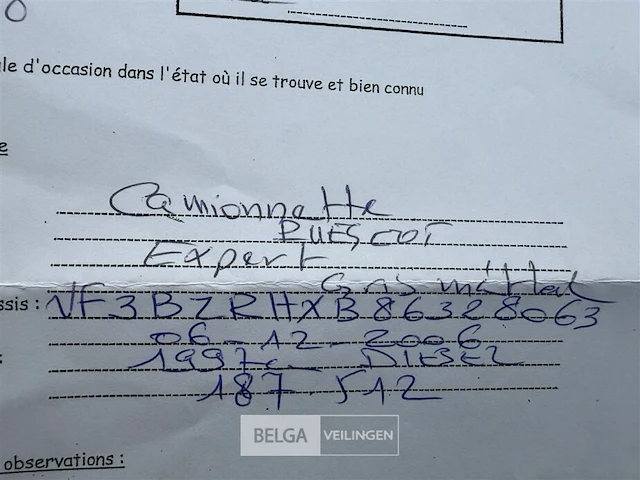 le d'occasion dans l'état où il se trouve et bien connu
Camionnette
PUEGEOT
Expert
Gris métal
ssis : VF3BZRHXB86328063
06-12-2006
1997cc DIESEL
187.512
BELGA VEILINGEN
observations :